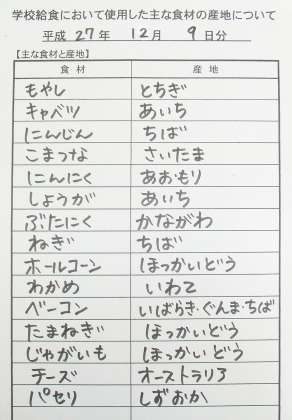 学校給食において使用した主な食材の産地について
平成 27年 12月 9日分
【主な食材と産地】
食材 産地
もやし とちぎ
キャベツ あいち
にんじん ちば
こまつな さいたま
にんにく あおもり
しょうが あいち
ぶたにく かながわ
ねぎ ちば
ホールコーン ほっかいどう
わかめ いわて
ベーコン いばらき・ぐんま・ちば
たまねぎ ほっかいどう
じゃがいも ほっかいどう
チーズ オーストラリア
パセリ しずおか